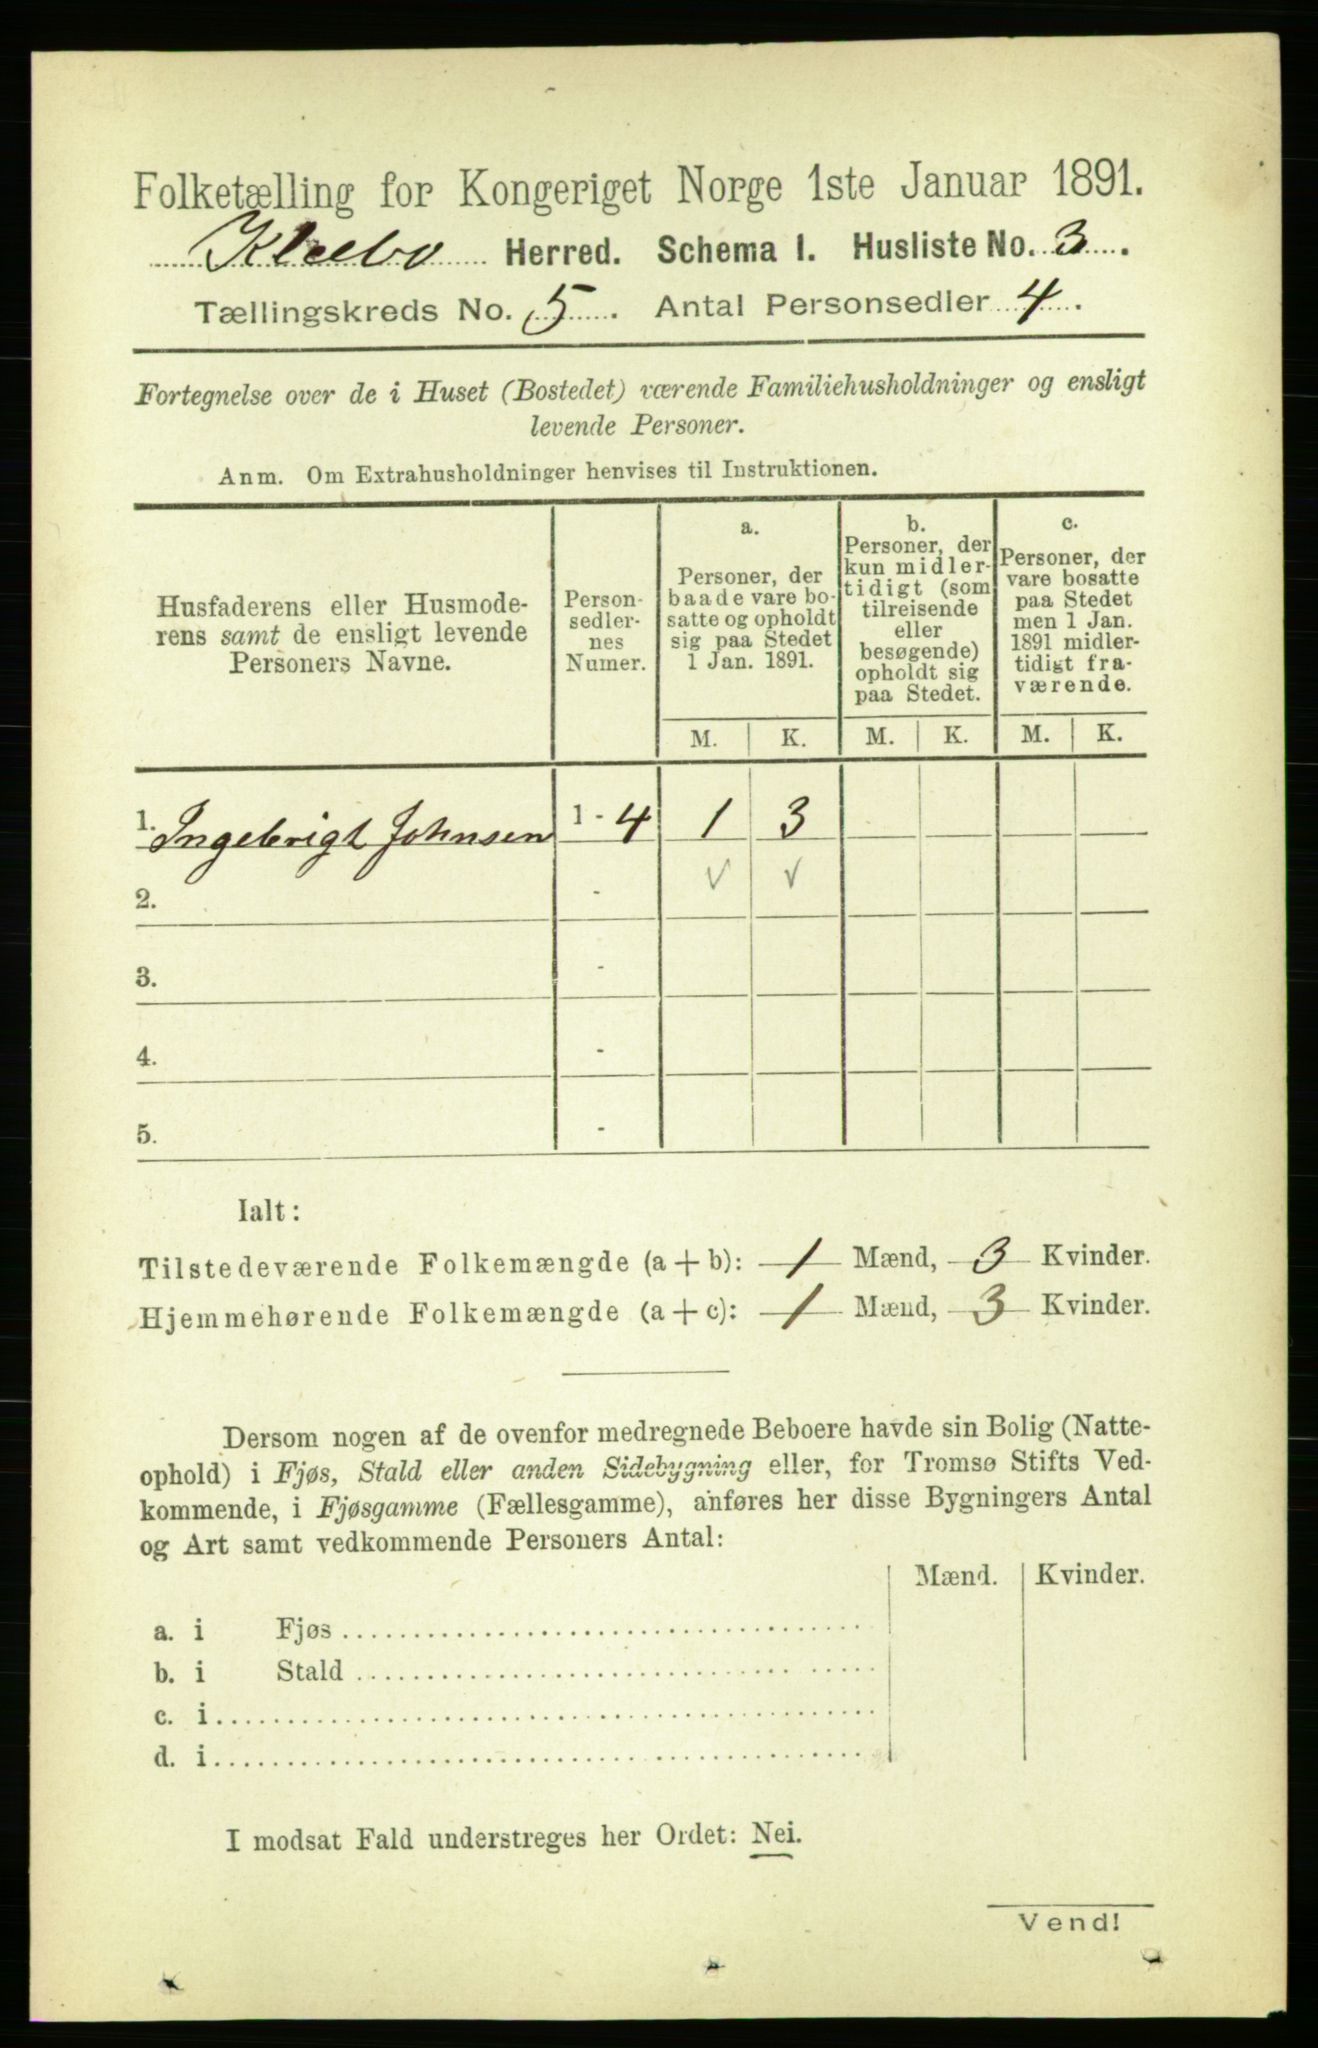 Folketælling for Kongeriget Norge 1ste Januar 1891.
Klæbo Herred. Schema I. Husliste No. 3.
Tællingskreds No. 5. Antal Personsedler 4.
Fortegnelse over de i Huset (Bostedet) værende Familiehusholdninger og ensligt
levende Personer.
Anm. Om Extrahusholdninger henvises til Instruktionen.
Husfaderens eller Husmode-
rens samt de ensligt levende
Personers Navne.
Person-
sedler-
nes
Numer.
a.
Personer, der
baade vare bo-
satte og opholdt
sig paa Stedet
1 Jan. 1891.
b.
Personer, der
kun midler-
tidigt (som
tilreisende
eller
besøgende)
opholdt sig
paa Stedet.
c.
Personer, der
vare bosatte
paa Stedet
men 1 Jan.
1891 midler-
tidigt fra-
værende.
M. K. M. K. M. K.
1. Ingebrigt Johnsen 1 - 4 1 3
2. - √ √
3. -
4. -
5. -
Ialt:
Tilstedeværende Folkemængde (a + b): 1 Mænd, 3 Kvinder.
Hjemmehørende Folkemængde (a + c): 1 Mænd, 3 Kvinder.
Dersom nogen af de ovenfor medregnede Beboere havde sin Bolig (Natte-
ophold) i Fjøs, Stald eller anden Sidebygning eller, for Tromsø Stifts Ved-
kommende, i Fjøsgamme (Fællesgamme), anføres her disse Bygningers Antal
og Art samt vedkommende Personers Antal:
Mænd. Kvinder.
a. i Fjøs
b. i Stald
c. i
d. i
I modsat Fald understreges her Ordet: Nei.
Vend!